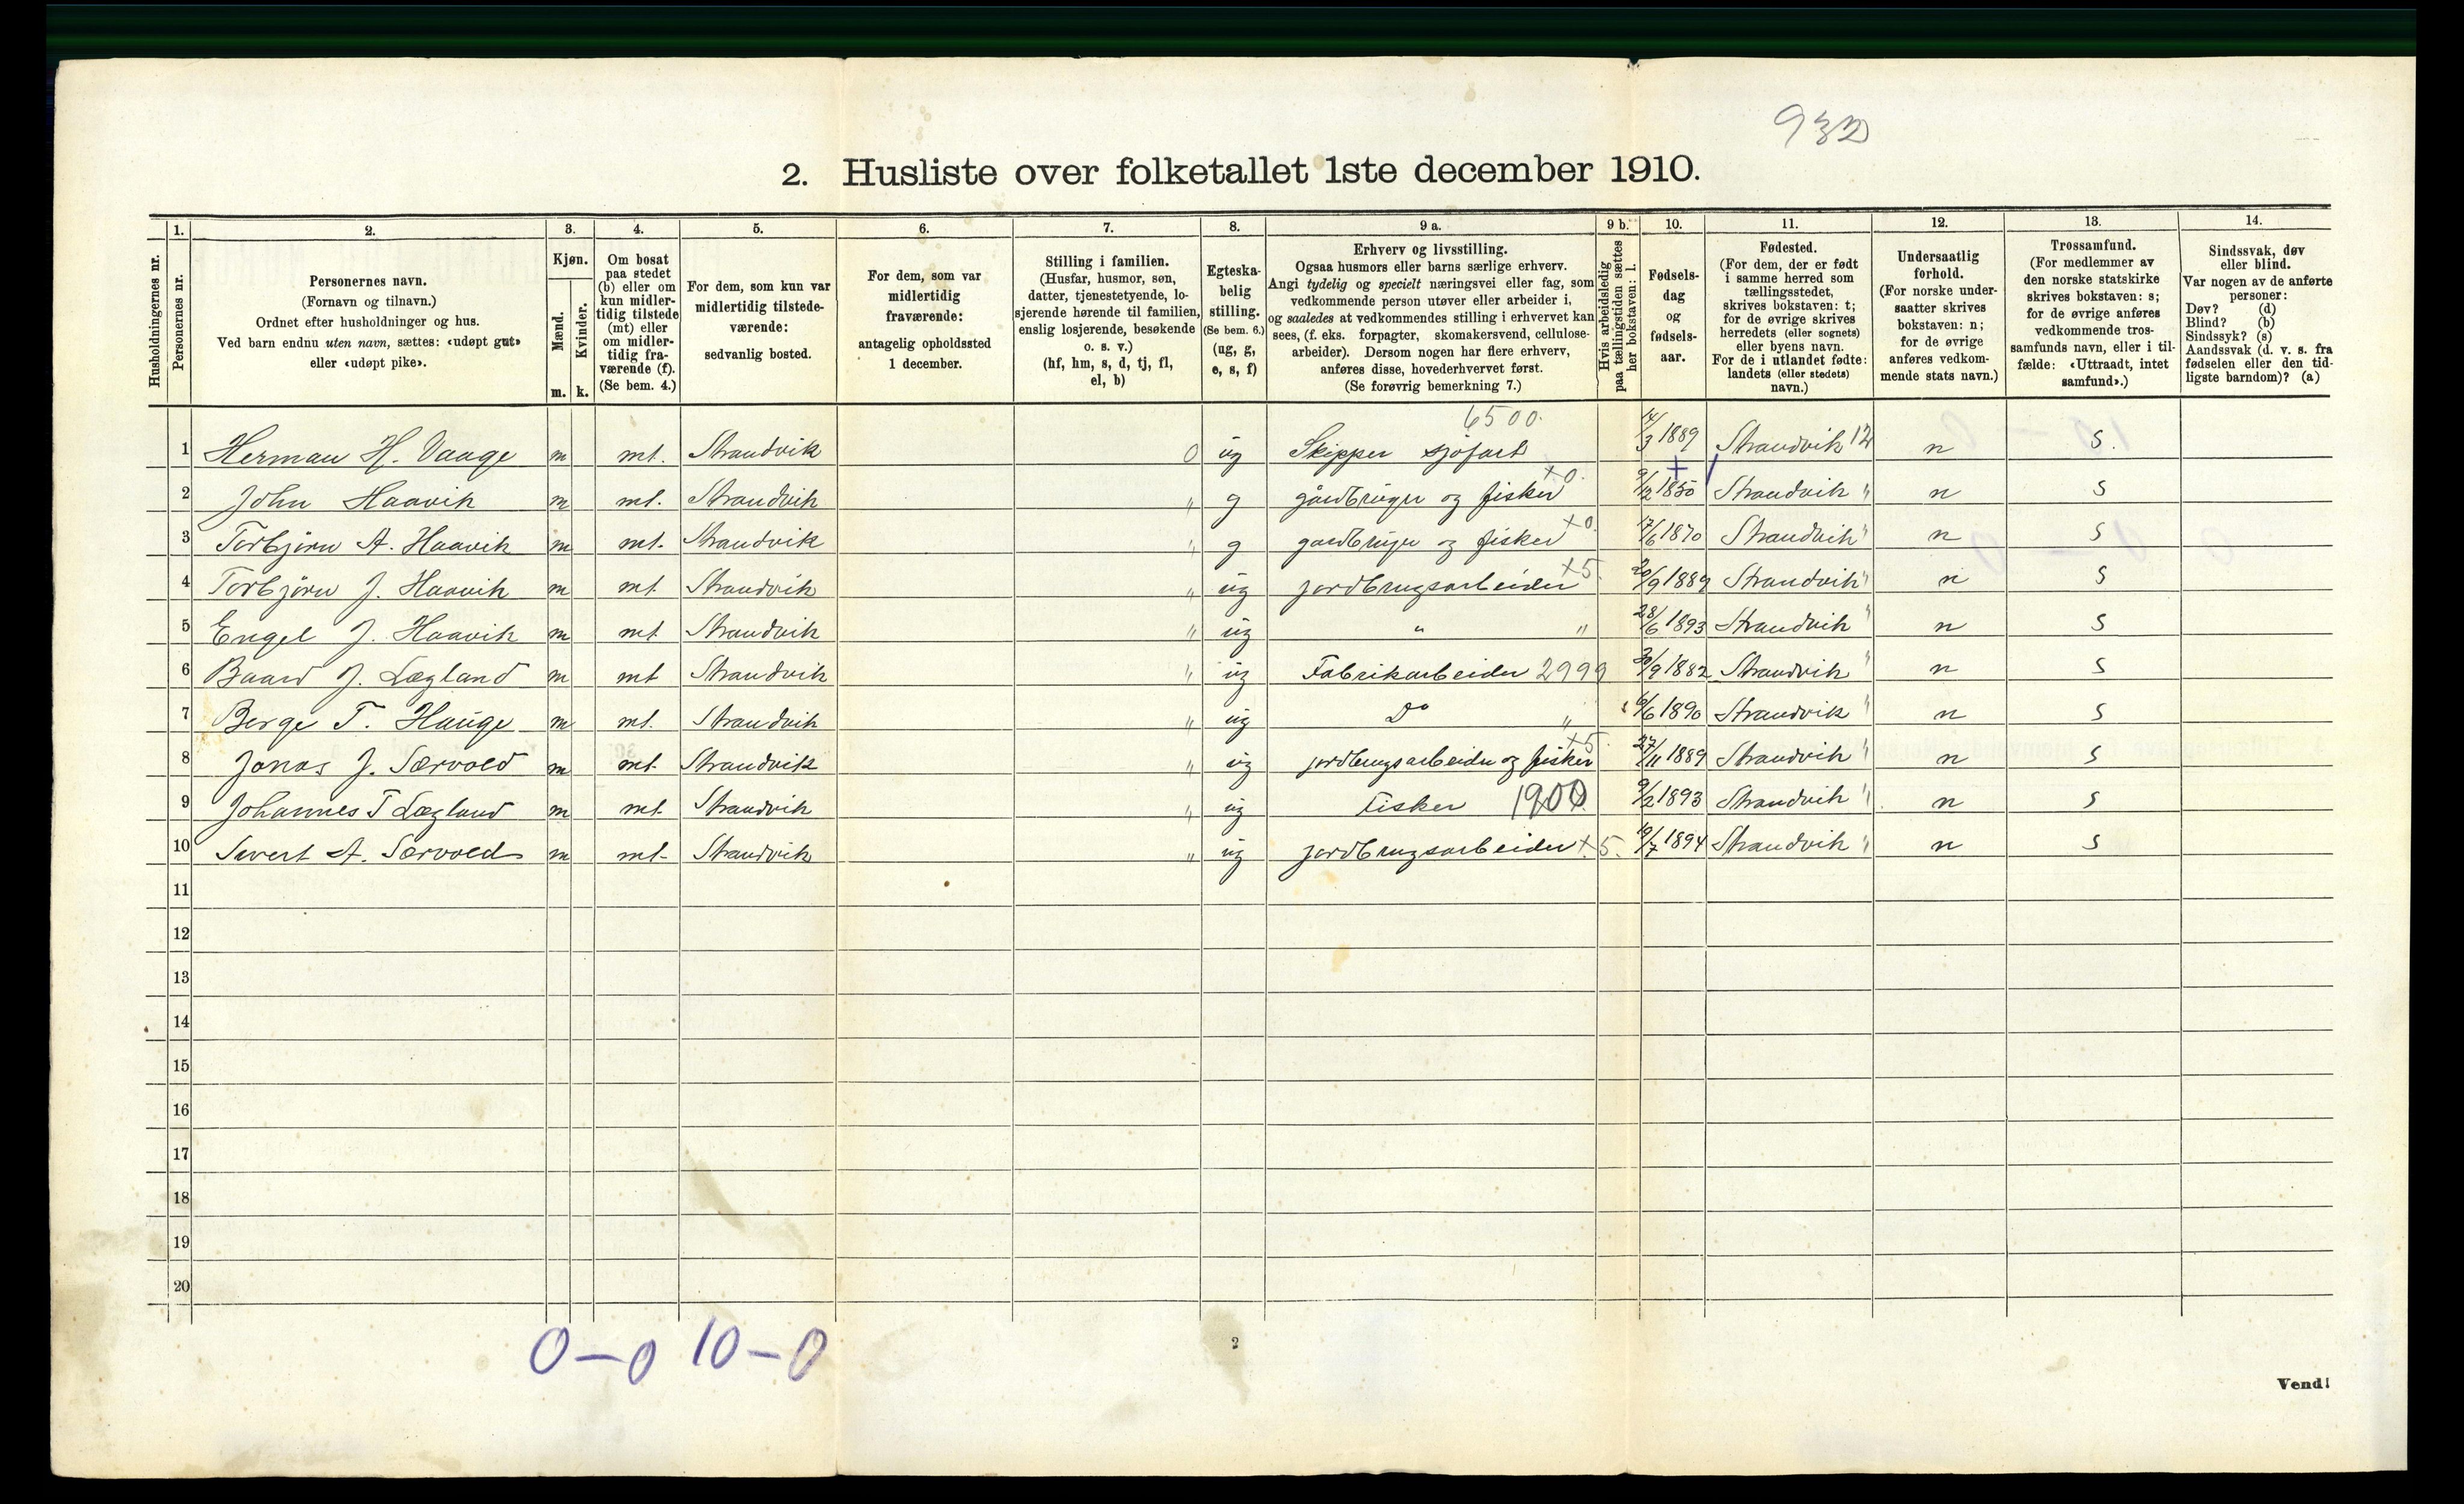 932
2. Husliste over folketallet 1ste december 1910.
Husholdningernes nr.
1. Personernes nr.
2. Personernes navn.
(Fornavn og tilnavn.)
Ordnet efter husholdninger og hus.
Ved barn endnu uten navn, sættes: «udøpt gut»
eller «udøpt pike».
3. Kjøn.
Mænd. Kvinder.
m. k.
4. Om bosat
paa stedet
(b) eller om
kun midler-
tidig tilstede
(mt) eller
om midler-
tidig fra-
værende (f).
(Se bem. 4.)
5. For dem, som kun var
midlertidig tilstede-
værende:
sedvanlig bosted.
6. For dem, som var
midlertidig
fraværende:
antagelig opholdssted
1 december.
7. Stilling i familien.
(Husfar, husmor, søn,
datter, tjenestetyende, lo-
sjerende hørende til familien,
enslig losjerende, besøkende
o. s. v.)
(hf, hm, s, d, tj, fl,
el, b)
8. Egteska-
belig
stilling.
(Se bem. 6.)
(ug, g,
e, s, f)
9 a. Erhverv og livsstilling.
Ogsaa husmors eller barns særlige erhverv.
Angi tydelig og specielt næringsvei eller fag, som
vedkommende person utøver eller arbeider i,
og saaledes at vedkommendes stilling i erhvervet kan
sees, (f. eks. forpagter, skomakersvend, cellulose-
arbeider). Dersom nogen har flere erhverv,
anføres disse, hovederhvervet først.
(Se forøvrig bemerkning 7.)
9 b. Hvis arbeidsledig
paa tællingstiden sættes
her bokstaven: l.
10. Fødsels-
dag
og
fødsels-
aar.
11. Fødested.
(For dem, der er født
i samme herred som
tællingsstedet,
skrives bokstaven: t;
for de øvrige skrives
herredets (eller sognets)
eller byens navn.
For de i utlandet fødte:
landets (eller stedets)
navn.)
12. Undersaatlig
forhold.
(For norske under-
saatter skrives
bokstaven: n;
for de øvrige
anføres vedkom-
mende stats navn.)
13. Trossamfund.
(For medlemmer av
den norske statskirke
skrives bokstaven: s;
for de øvrige anføres
vedkommende tros-
samfunds navn, eller i til-
fælde: «Uttraadt, intet
samfund».)
14. Sindssvak, døv
eller blind.
Var nogen av de anførte
personer:
Døv? (d)
Blind? (b)
Sindssyk? (s)
Aandssvak (d. v. s. fra
fødselen eller den tid-
ligste barndom)? (a)
6500.
1 Herman H. Vaage m mt. Strandvik 0 ug Skipper sjøfart 14/3 1889 Strandvik 12 n S.
2 John Haavik m mt. Strandvik " g gårdbruger og fisker +0. 9/12 1850 Strandvik " n S
3 Torbjörn A. Haavik m mt. Strandvik " g gardbruger og fisker +0. 17/6 1870 Strandvik " n S
4 Torbjörn J. Haavik m mt. Strandvik " ug jordbrugsarbeider +5. 20/9 1889 Strandvik " n S
5 Engel J. Haavik m mt. Strandvik " ug " " 28/6 1893 Strandvik " n S
6 Baard J. Lægland m mt Strandvik " ug Fabrikarbeider 2999 30/9 1882 Strandvik " n S
7 Berge T. Hauge m mt. Strandvik " ug Do " 6/6 1890 Strandvik " n S
8 Jonas J. Særvold m mt. Strandvik " ug jordbrugsarbeider og fisker +5. 27/11 1889 Strandvik " n S
9 Johannes T Lægland m mt. Strandvik " ug Fisker 1900 9/2 1893 Strandvik " n S
10 Sivert A. Særvold m mt. Strandvik " ug jordbrugsarbeider +5. 19/7 1894 Strandvik " n S
11
12
13
14
15
16
17
18
19
20
0—0 10—0
2
Vend!